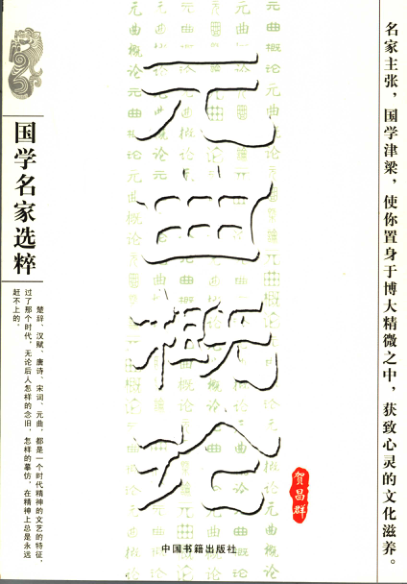 名家主张，国学津梁，使你置身于博大精微之中，获致心灵的文化滋养。
元曲概论
贺昌群
中国书籍出版社
国学名家选粹
楚辞、汉赋、唐诗、宋词、元曲，都是一个时代精神的文艺的特征，
过了那个时代，无论后人怎样的念旧，怎样的摹仿，在精神上总是永远
赶不上的。